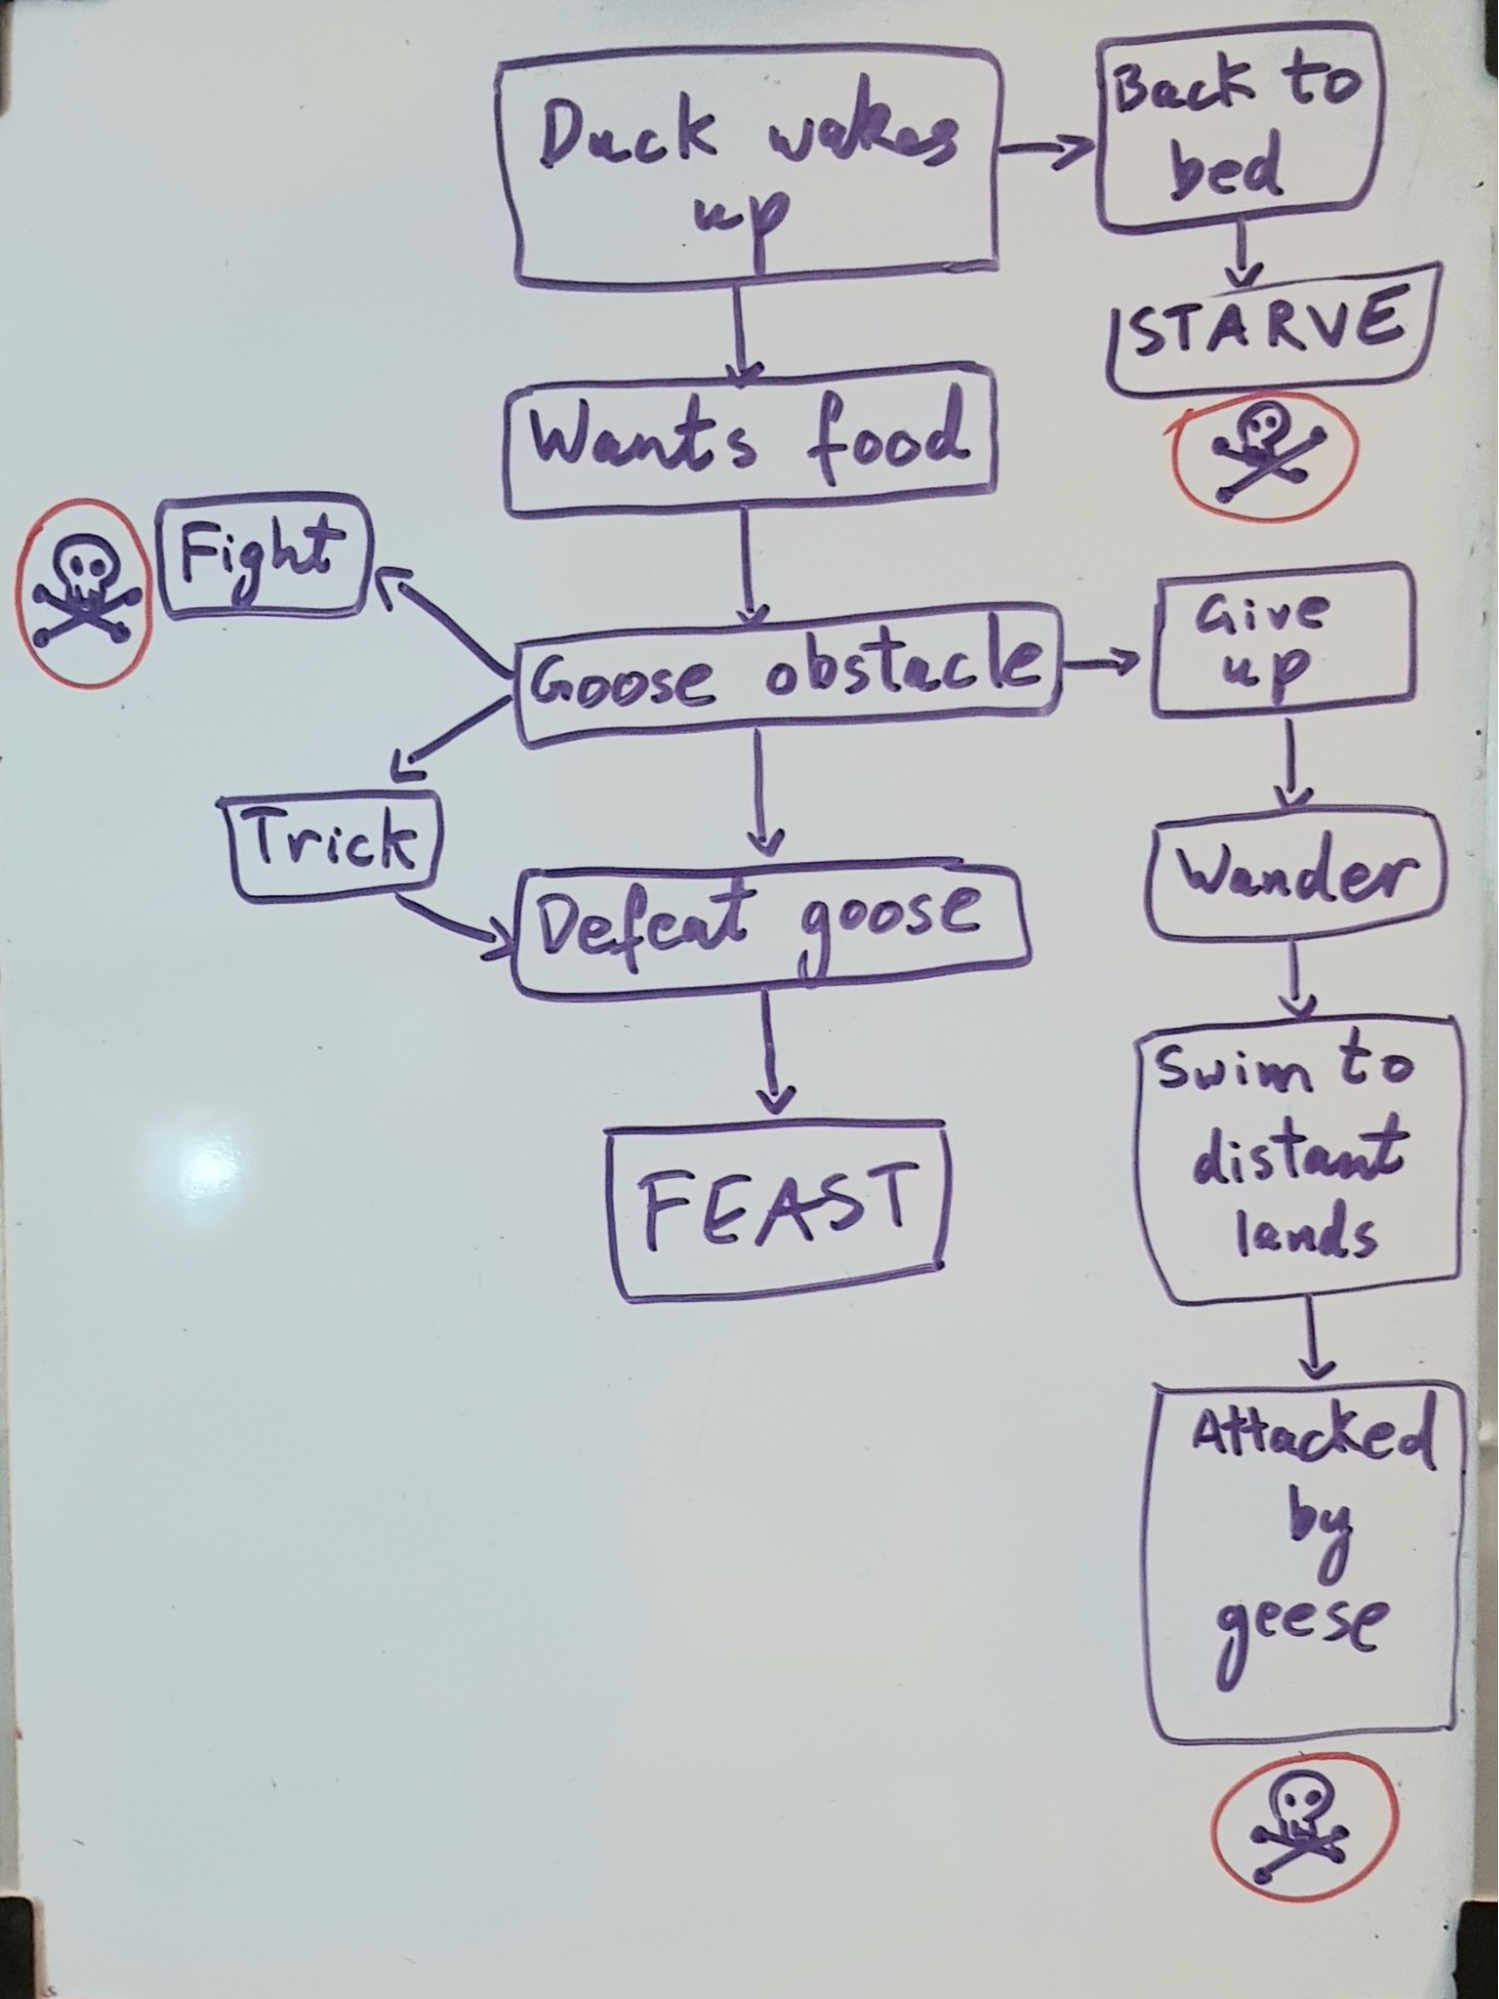 Duck wakes
up
Back to
bed
STARVE
Wants food
Fight
Goose obstacle
Give
up
Trick
Wander
Defeat goose
Swim to
distant
lands
FEAST
Attacked
by
geese